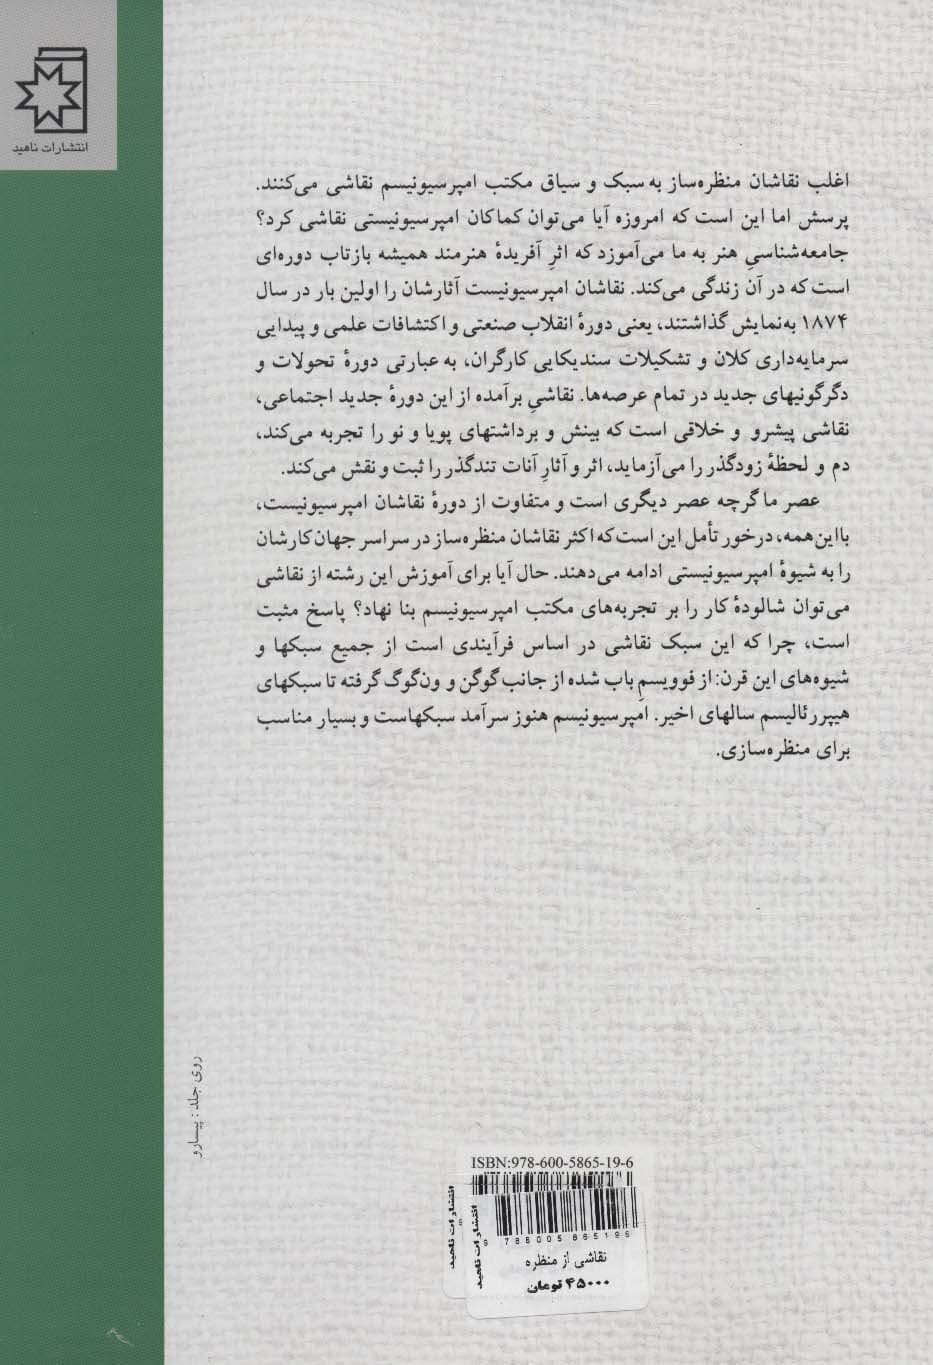 انتشارات ناهید
اغلب نقاشان منظره‌ساز به سبک و سیاق مکتب امپرسیونیسم نقاشی می‌کنند.
پرسش اما این است که امروزه آیا می‌توان کماکان امپرسیونیستی نقاشی کرد؟
جامعه‌شناسیِ هنر به ما می‌آموزد که اثرِ آفریدهٔ هنرمند همیشه بازتاب دوره‌ای
است که در آن زندگی می‌کند. نقاشان امپرسیونیست آثارشان را اولین بار در سال
۱۸۷۴ به‌نمایش گذاشتند، یعنی دورهٔ انقلاب صنعتی و اکتشافات علمی و پیدایی
سرمایه‌داری کلان و تشکیلات سندیکایی کارگران، به عبارتی دورهٔ تحولات و
دگرگونیهای جدید در تمام عرصه‌ها. نقاشیِ برآمده از این دورهٔ جدید اجتماعی،
نقاشی پیشرو و خلاقی است که بینش و برداشتهای پویا و نو را تجربه می‌کند،
دم و لحظهٔ زودگذر را می‌آزماید، اثر و آثارِ آنات تندگذر را ثبت و نقش می‌کند.
عصر ما گرچه عصر دیگری است و متفاوت از دورهٔ نقاشان امپرسیونیست،
بااین‌همه، درخور تأمل این است که اکثر نقاشان منظره‌ساز در سراسر جهان کارشان
را به شیوهٔ امپرسیونیستی ادامه می‌دهند. حال آیا برای آموزش این رشته از نقاشی
می‌توان شالودهٔ کار را بر تجربه‌های مکتب امپرسیونیسم بنا نهاد؟ پاسخ مثبت
است، چرا که این سبک نقاشی در اساس فرآیندی است از جمیع سبکها و
شیوه‌های این قرن: از فوویسمِ باب شده از جانب گوگن و ون‌گوگ گرفته تا سبکهای
هیپررئالیسم سالهای اخیر. امپرسیونیسم هنوز سرآمد سبکهاست و بسیار مناسب
برای منظره‌سازی.
روی جلد : پیسارو
ISBN:978-600-5865-19-6
انتشارات ناهید
انتشارات ناهید
9 786005 865196
نقاشی از منظره
۴۵۰۰۰ تومان